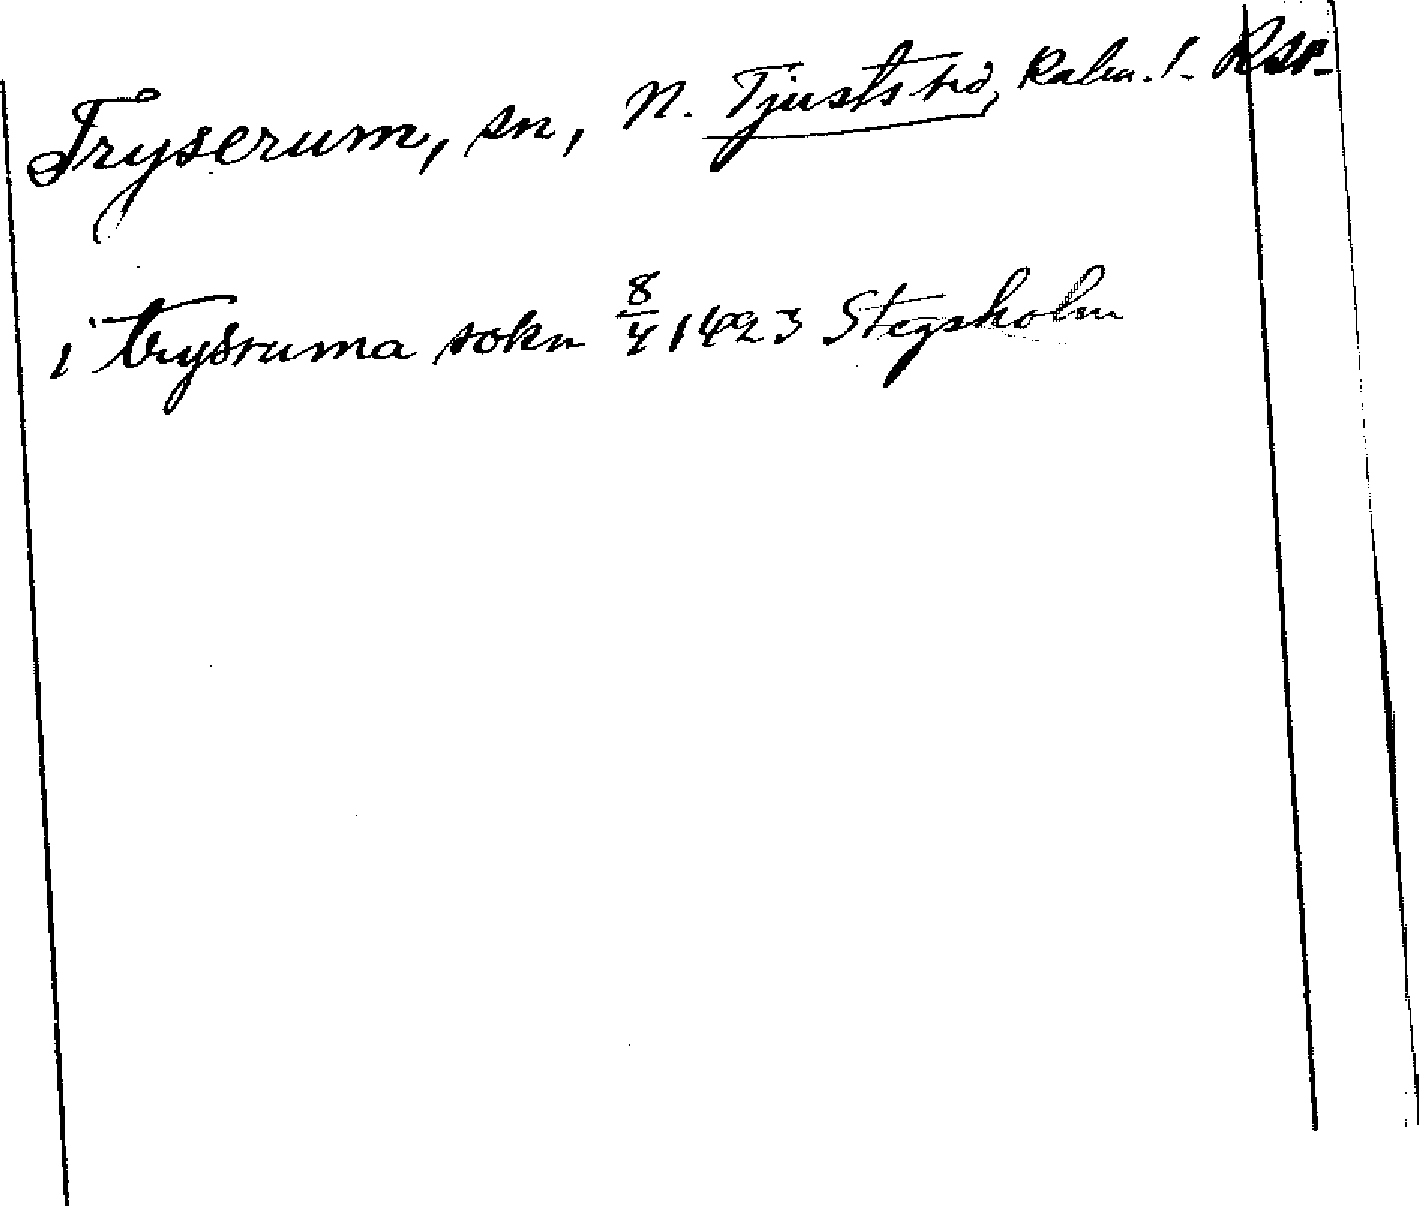 Tryserum, sn, N. Tjusts hd, Kalm. l. Rap.
i trysruma sokn 8/4 1423 Stegsholm